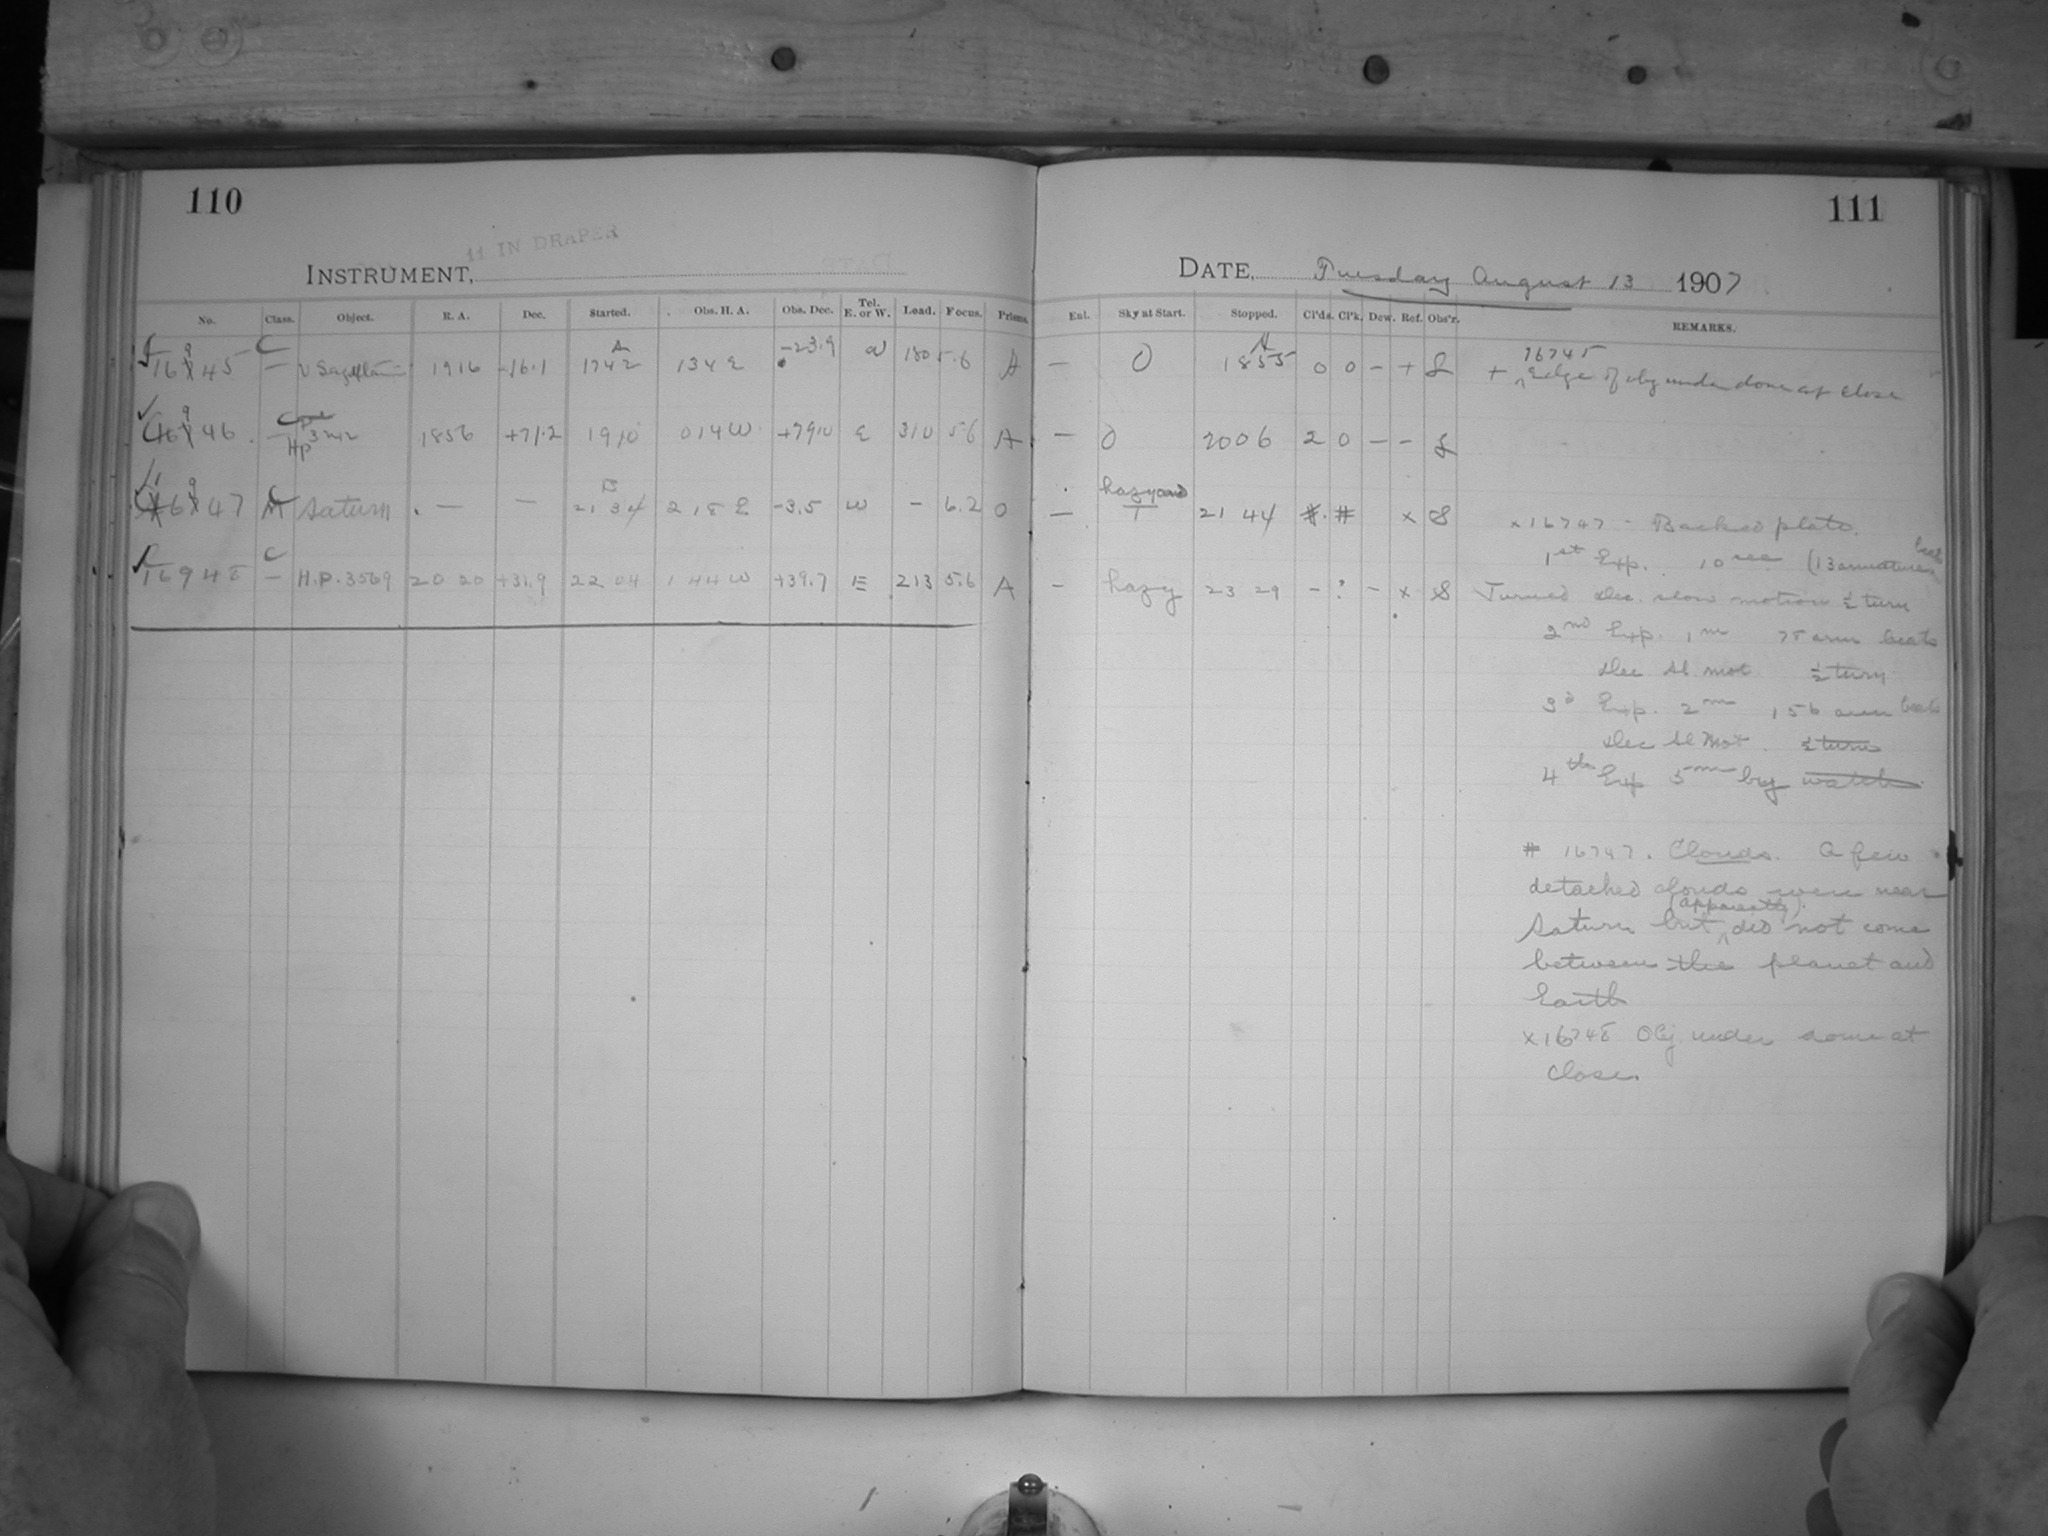 110
11 IN DRAPER
INSTRUMENT,
No. Class. Object. R. A. Dec. Started. Obs. H. A. Obs. Dec. Tel. E. or W. Load. Focus. Prisms.
C 9 A
16745 — υ Sagittarii 1916 -16.1 1742 134 E -23.9 W 180 5.6 A
9 C
16746 Hp 3212 1856 +71.2 1910 014 W +79.0 E 310 5.6 A
9 C B
16747 M Saturn — — 2134 218 E -3.5 W — 6.2 O
C
16948 — H.P. 3569 20 20 +31.9 22 04 1 44 W +39.7 E 213 5.6 A
111
DATE, Tuesday August 13 1907
Enl. Sky at Start. Stopped. Cl'ds. Cl'k. Dew. Ref. Obs'r. REMARKS.
A 16745
— 0 1855 0 0 — + + Edge of obj under dome at close
— 0 2006 2 0 — —
— hazy and 21 44 # # x S x 16747 - Backed plate.
1st Exp. 10 sec (13 armature beats
— hazy 23 29 — ? — x S Turned Dec. slow motion ½ turn
2nd Exp. 1m 75 arm beats
Dec Sl. mot ½ turn
3d Exp. 2m 156 arm beats
Dec Sl Mot. ½ turn
4th Exp 5m by watch
# 16747. Clouds. A few
detached clouds were near
(apparently)
Saturn but did not come
between the planet and
Earth
x 16748 Obj. under dome at
close.